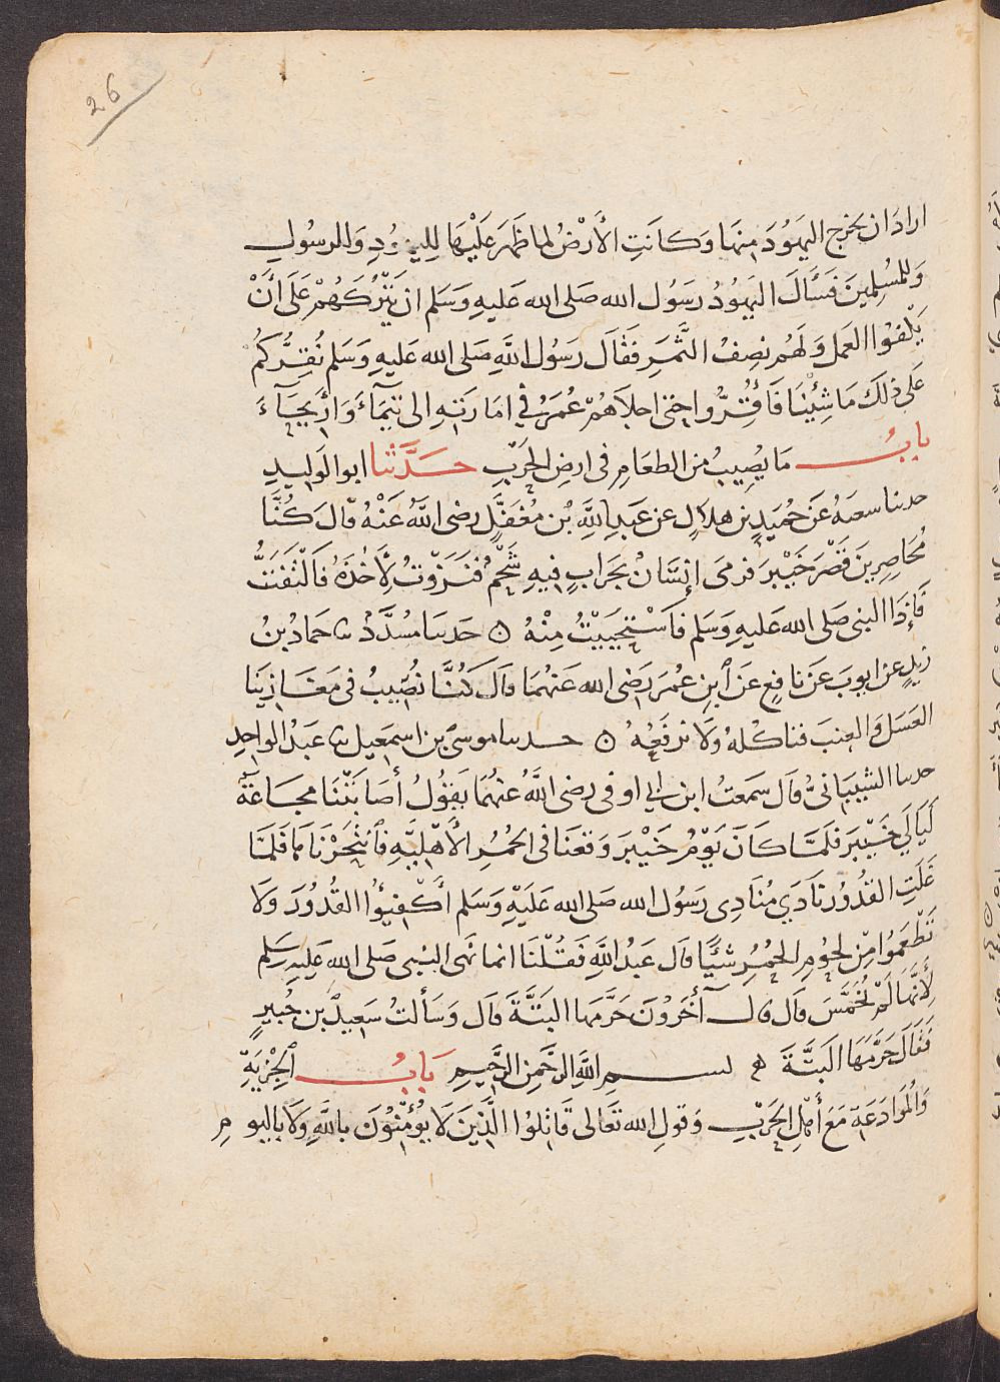 26
اراد ان يخرج اليهُودَ منهَا وَكانَتِ الأَرْضُ لما ظهَرَ عَلَيْهَا لِليهُودِ وَللرسُولِ
وَللمُسْلِمينَ فَسَأَلَ اليهُودُ رسَوُل الله صَلى الله عَليهِ وَسَلم ان يَتْرُكَهُمْ عَلَى أَنْ
يَكْفوُا العَمل وَلَهُم نصِفُ الثَّمَرِ فَقَال رسَوُل اللهِ صَلى الله عَليهِ وَسَلم نُقِرُّكُم
عَلى ذلِكَ مَا شِئْنَا فَأُقِرُّوا حتى اجلاَهُمْ عُمَرُ في امَارَتهِ الى تَيمَآءَ وَأَرِيحَآءَ
بابُ مَا يُصِيبُ من الطعَامِ فى ارضِ الحَرْبِ حَدَّثنا ابوا لَوليدِ
حدثنا سعبهُ عَن حُمَيدِ بن هلاَلٍ عن عَبدِ اللهِ بْن مُغَفَّلٍ رضى اللهُ عَنْهُ قال كُنَّا
مُحَاصِرِينَ قَصْرَ خَيْبرَ فرمى إنسَانٌ بجرابٍ فيهِ شَحْمٌ فَنَزَوْتُ لِأَخذَهُ فَالْتَفَتُّ
فَإذَا النبى صَلى الله عَليهِ وَسَلم فاَسْتحْيَيْتُ مِنْهُ ٥ حَدثنا مسُدَّدٌ ثنا حَمادُ بنُ
زيدٍ عن ايوبَ عَن نافعٍ عَن ابنِ عُمرَ رَضى الله عَنهُمَا قال كُنَّا نُصِيبُ فى مَغَازِينَا
العَسَل وَالعنبَ فناكلهُ وَلَا نرفَعُهُ ٥ حدثنا موسىَ بن اسمعيل ثنا عَبدُ الواحِدِ
حدثنا الشيبَانىُّ قال سَمعتُ ابن ابي اوفى رضى اللهُ عَنهُمَا يَقوُلُ أَصَابَتْنَا مجَاعَةٌ
لَيَالي خَيْبرَ فلَمَّا كَانَ يَوْمُ خَيْبرَ وَقعنَا فى الحُمُرِ الأَهْليَّهِ فَانْتَحَرْنَاهَا فَلمَّا
غَلَتِ القدُورُ نَادَى مُنَادِى رسَوُل الله صَلى الله عَلَيْهِ وَسَلم أَكْفِئوُا القُدُورَ وَلَا
تَطْعَمُوا مِنْ لحوُمِ الحمُرِ شَيْئًا قال عَبدُ اللهِ فَقُلْنَا انما نَهى النبى صَلى الله عَليهِ وَسَلم
لِأَنَّهَا لَمْ تُخَمَّسَ قال وقال آخَرُونَ حَرَّمهَا البَتَّةَ قال وَسَألتُ سَعيدَ بن جُبيرٍ
فَقَالَ حَرَّمَهَا البَتَّةَ ه بسمِ اللهِ الرحَمنِ الرَّحيمِ بَابُ الجِزْيَةِ
وَالمُوَادَعَةِ مَعَ أَهْلِ الحَرْبِ وَقولِ الله تَعَالى قَاتلوُا الَّذيَنَ لَا يُؤْمنُوْنَ باللهِ وَلَا باليومِ